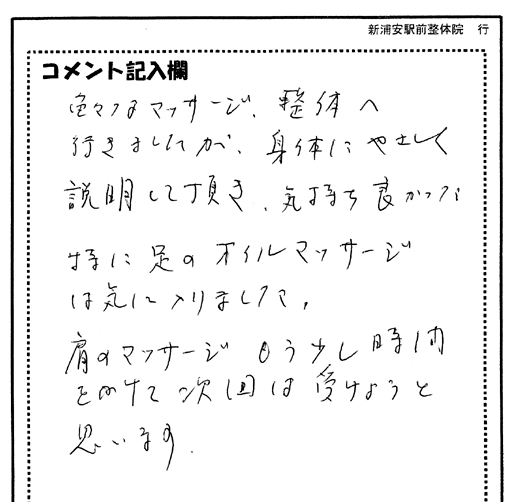 新浦安駅前整体院 行
コメント記入欄
色々なマッサージ、整体へ
行きましたが、身体にやさしく
説明して頂き、気持ち良かった
特に足のオイルマッサージ
は気に入りました。
肩のマッサージもう少し時間
をかけて次回は受けようと
思います.